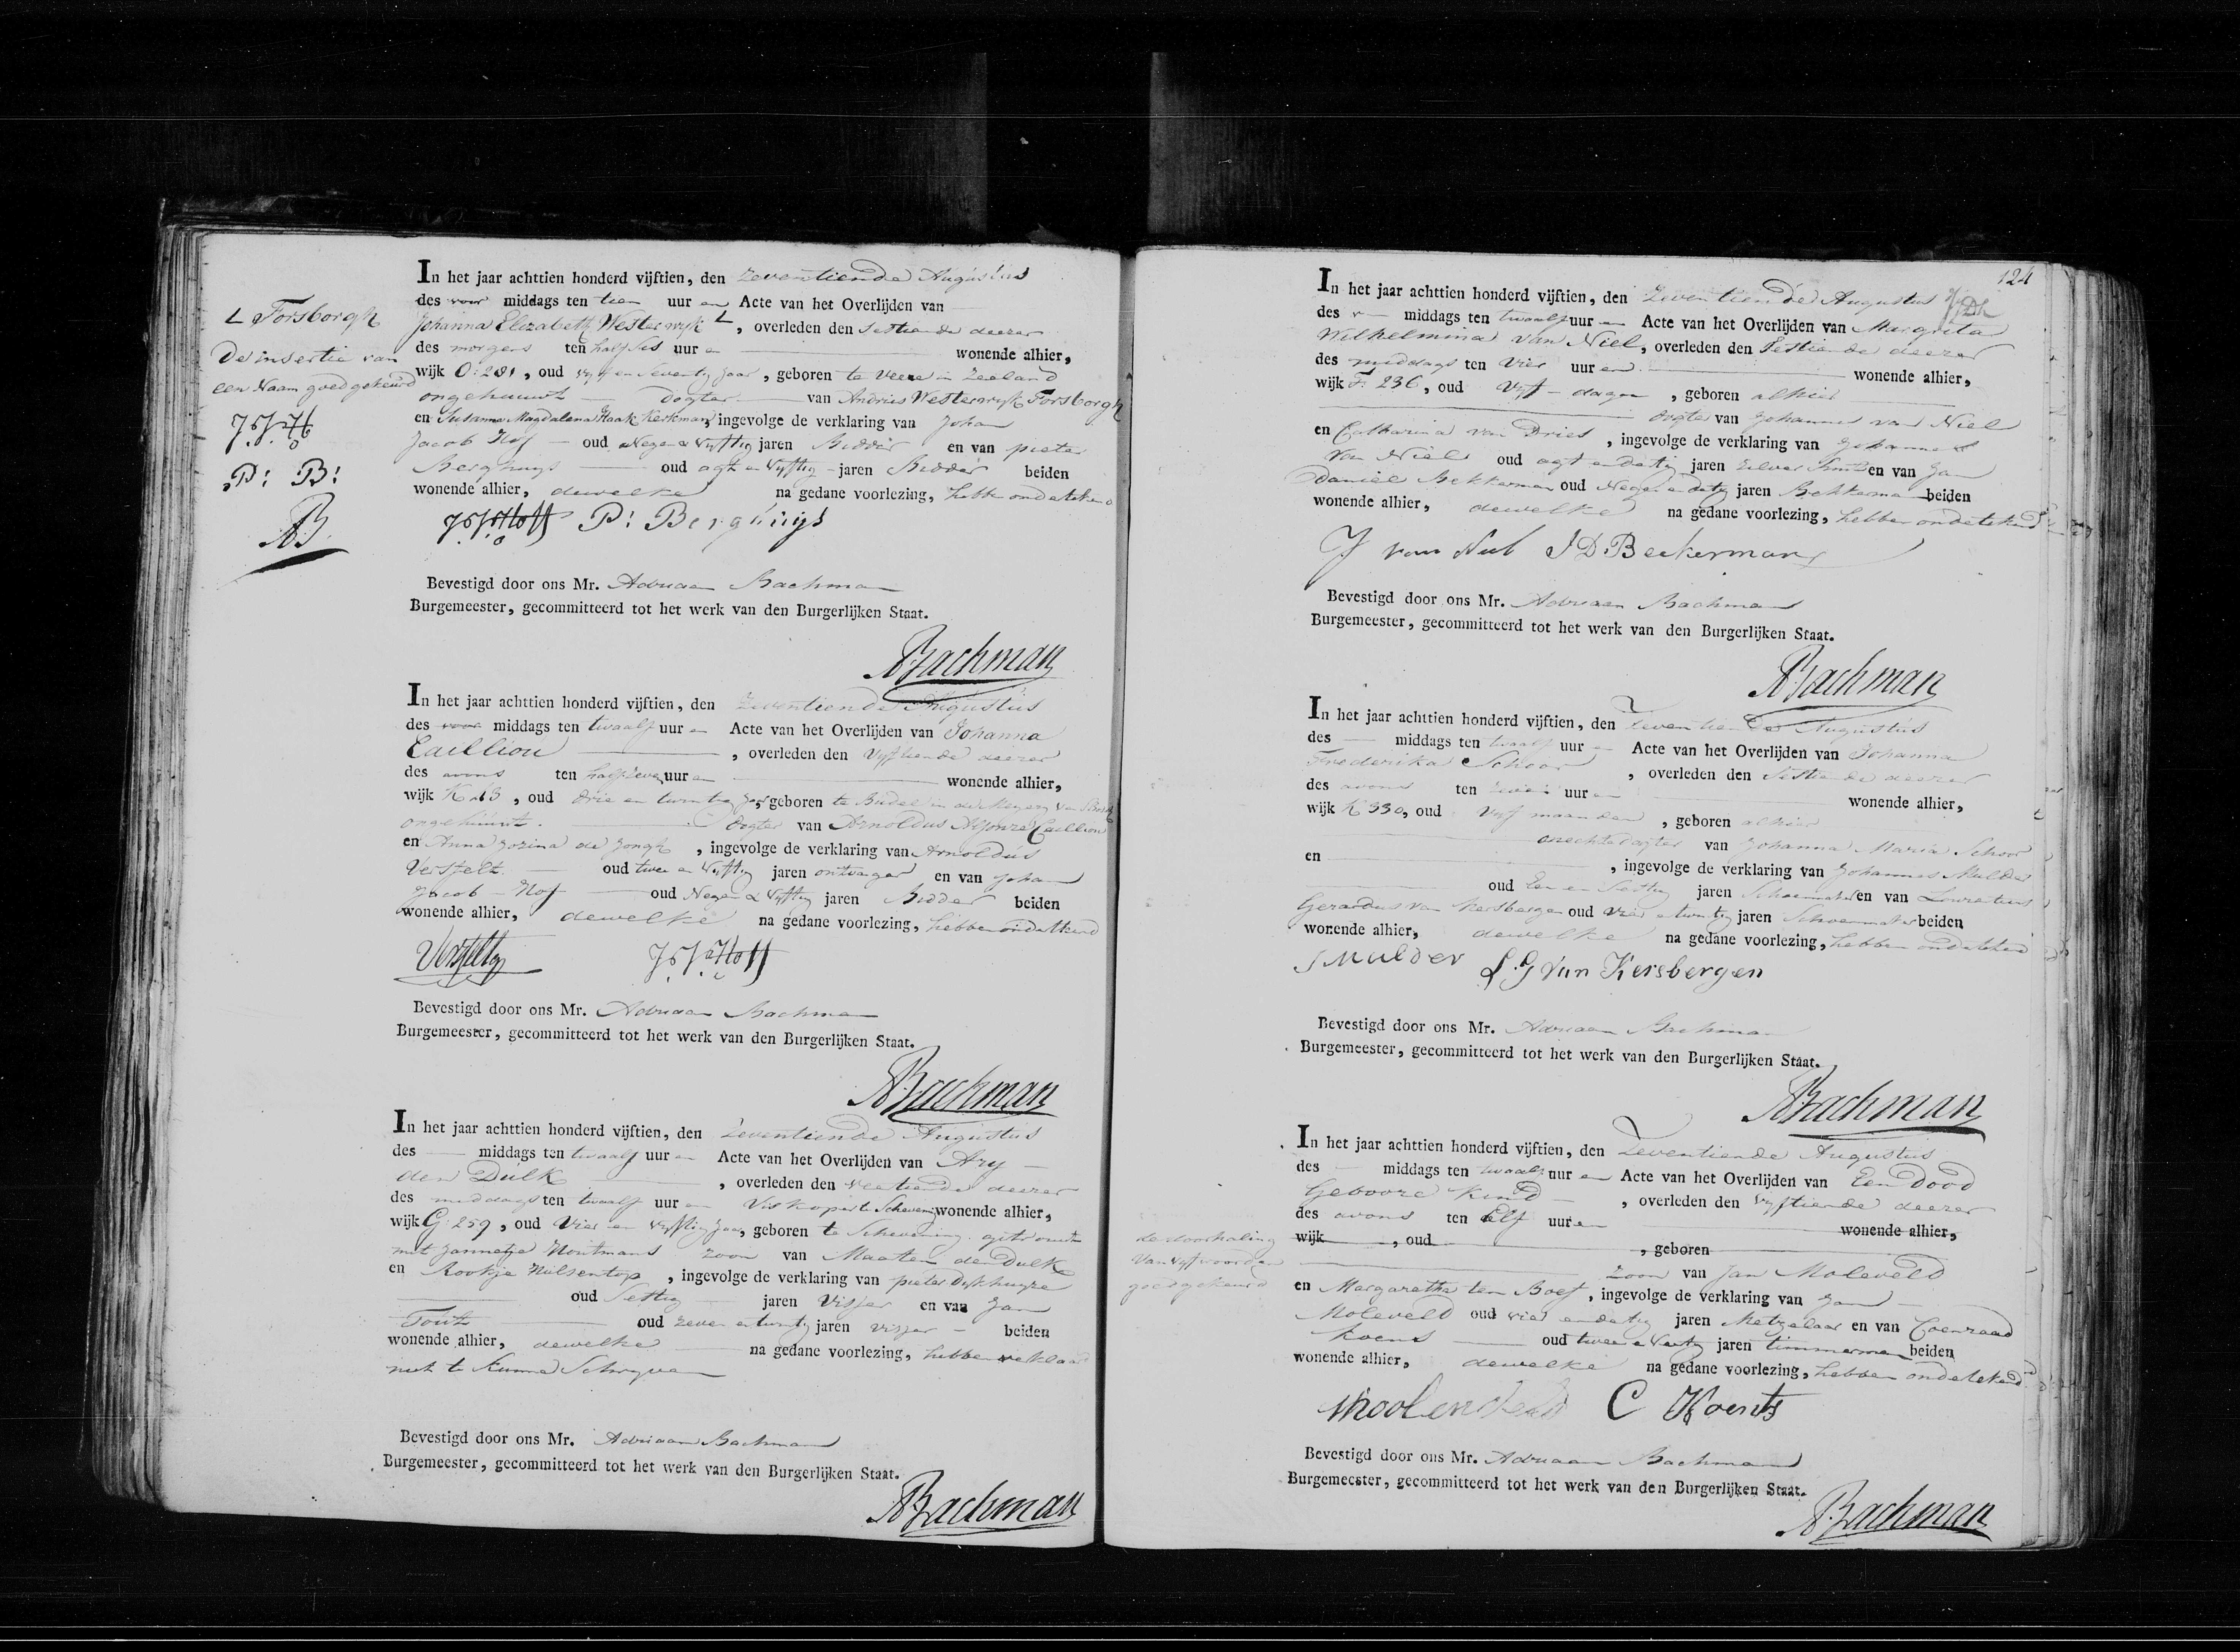 L Forsborgh
De insertie van
een Naam goedgekeurd
P: B:
AB
In het jaar achttien honderd vijftien, den zeventiende Augustus
des voor middags ten tien uur en Acte van het Overlijden van
Johanna Elizabeth Westerwyk L, overleden den sestiende deezer
des morgens ten half ses uur en wonende alhier,
wijk O: 281, oud vyf en seventig Jaar, geboren te Veere in Zeeland
ongehuuwt dogter van Andries Westerwyk Forsborgh
en Susanna Magdalena Haak Kerkman, ingevolge de verklaring van Johan
Jacob Hof oud Negen & vyftig jaren Bidder en van pieter
Berghuys oud agt en vyftig jaren Bidder beiden
wonende alhier, dewelke na gedane voorlezing, hebben ondetekend
J. J. Hoff P: Berghuijs
Bevestigd door ons Mr. Adriaan Bachman
Burgemeester, gecommitteerd tot het werk van den Burgerlijken Staat.
ABachman
In het jaar achttien honderd vijftien, den zeventiende Augustus
des voor middags ten twaalf uur en Acte van het Overlijden van Johanna
Caillion, overleden den vyftiende deezer
des avons ten half zeven uur en wonende alhier,
wijk K 13, oud drie en twintig Jaar, geboren te Budel in de Meyery van
ongehuuwt. dogter van Arnoldus Caillion
en Anna Jozina de Jongh, ingevolge de verklaring van Arnoldus
Versfelt oud twee en vyftig jaren ontvanger en van Johan
Jacob Hof oud Negen & vyftig jaren Bidder beiden
wonende alhier, dewelke na gedane voorlezing, hebben ondetkend
Versfelt J. J. Hoff
Bevestigd door ons Mr. Adriaan Bachman
Burgemeester, gecommitteerd tot het werk van den Burgerlijken Staat.
ABachman
In het jaar achttien honderd vijftien, den zeventiende Augustus
des middags ten twaalf uur en Acte van het Overlijden van Ary
den Dulk, overleden den veertiende deezer
des middags ten twaalf uur en Viskoper te Schevening wonende alhier,
wijk G: 259, oud vier en vyftig Jaar, geboren te Schevening getrouwt
met Jannetje Houtmans zoon van Maarten den Dulk
en Rookje, ingevolge de verklaring van pieter Dykhuyze
oud Sestig jaren visser en van Jan
Tout oud zeven en twintig jaren visser beiden
wonende alhier, dewelke na gedane voorlezing, hebben verklaar
niet te kunne Schryven
Bevestigd door ons Mr. Adriaan Bachman
Burgemeester, gecommitteerd tot het werk van den Burgerlijken Staat.
ABachman
124
In het jaar achttien honderd vijftien, den zeventiende Augustus
des middags ten twaalf uur en Acte van het Overlijden van Margrita
Wilhelmina van Niel, overleden den sestiende deezer
des middags ten vier uur en wonende alhier,
wijk F: 236, oud Vyf dagen, geboren alhier
dogter van Johannes van Niel
en Catharina van Dries, ingevolge de verklaring van Johannes
van Niel oud agt en dertig jaren zilver Smit en van Jan
Daniel Bekkerman oud Negen en dertig jaren beiden
wonende alhier, dewelke na gedane voorlezing, hebben ondetekend
J van Niel J D: Beckerman
Bevestigd door ons Mr. Adriaan Bachman
Burgemeester, gecommitteerd tot het werk van den Burgerlijken Staat.
ABachman
In het jaar achttien honderd vijftien, den zeventiende Augustus
des middags ten twaalf uur en Acte van het Overlijden van Johanna
Frederika Schoor, overleden den sestiende deezer
des avons ten zeven uur en wonende alhier,
wijk K 330, oud Vyf maanden, geboren alhier
onechte dogter van Johanna Maria Schoor
en, ingevolge de verklaring van Johannes Mulder
oud Een en Sestig jaren Schoenmaker en van Lourentius
Gerardus van Kersbergen oud vier & twintig jaren Schoenmaker beiden
wonende alhier, dewelke na gedane voorlezing, hebben ondetekend
J Mulder L. G van Kersbergen
Bevestigd door ons Mr. Adriaan Bachman
Burgemeester, gecommitteerd tot het werk van den Burgerlijken Staat.
ABachman
de doorhaling
van vyf woorden
goedgekeurd
In het jaar achttien honderd vijftien, den zeventiende Augustus
des middags ten twaalf uur en Acte van het Overlijden van Een dood
Geboore Kind, overleden den vyftiende deezer
des avons ten Elf uur en wonende alhier,
wijk, oud, geboren
zoon van Jan Moleveld
en Margaretha ten Boef, ingevolge de verklaring van Jan
Moleveld oud vier en dertig jaren Metzelaar en van Coenraad
Koens oud twee & Veertig jaren timmerman beiden
wonende alhier, dewelke na gedane voorlezing, hebben ondetekend
C Koents
Bevestigd door ons Mr. Adriaan Bachman
Burgemeester, gecommitteerd tot het werk van den Burgerlijken Staat.
ABachman